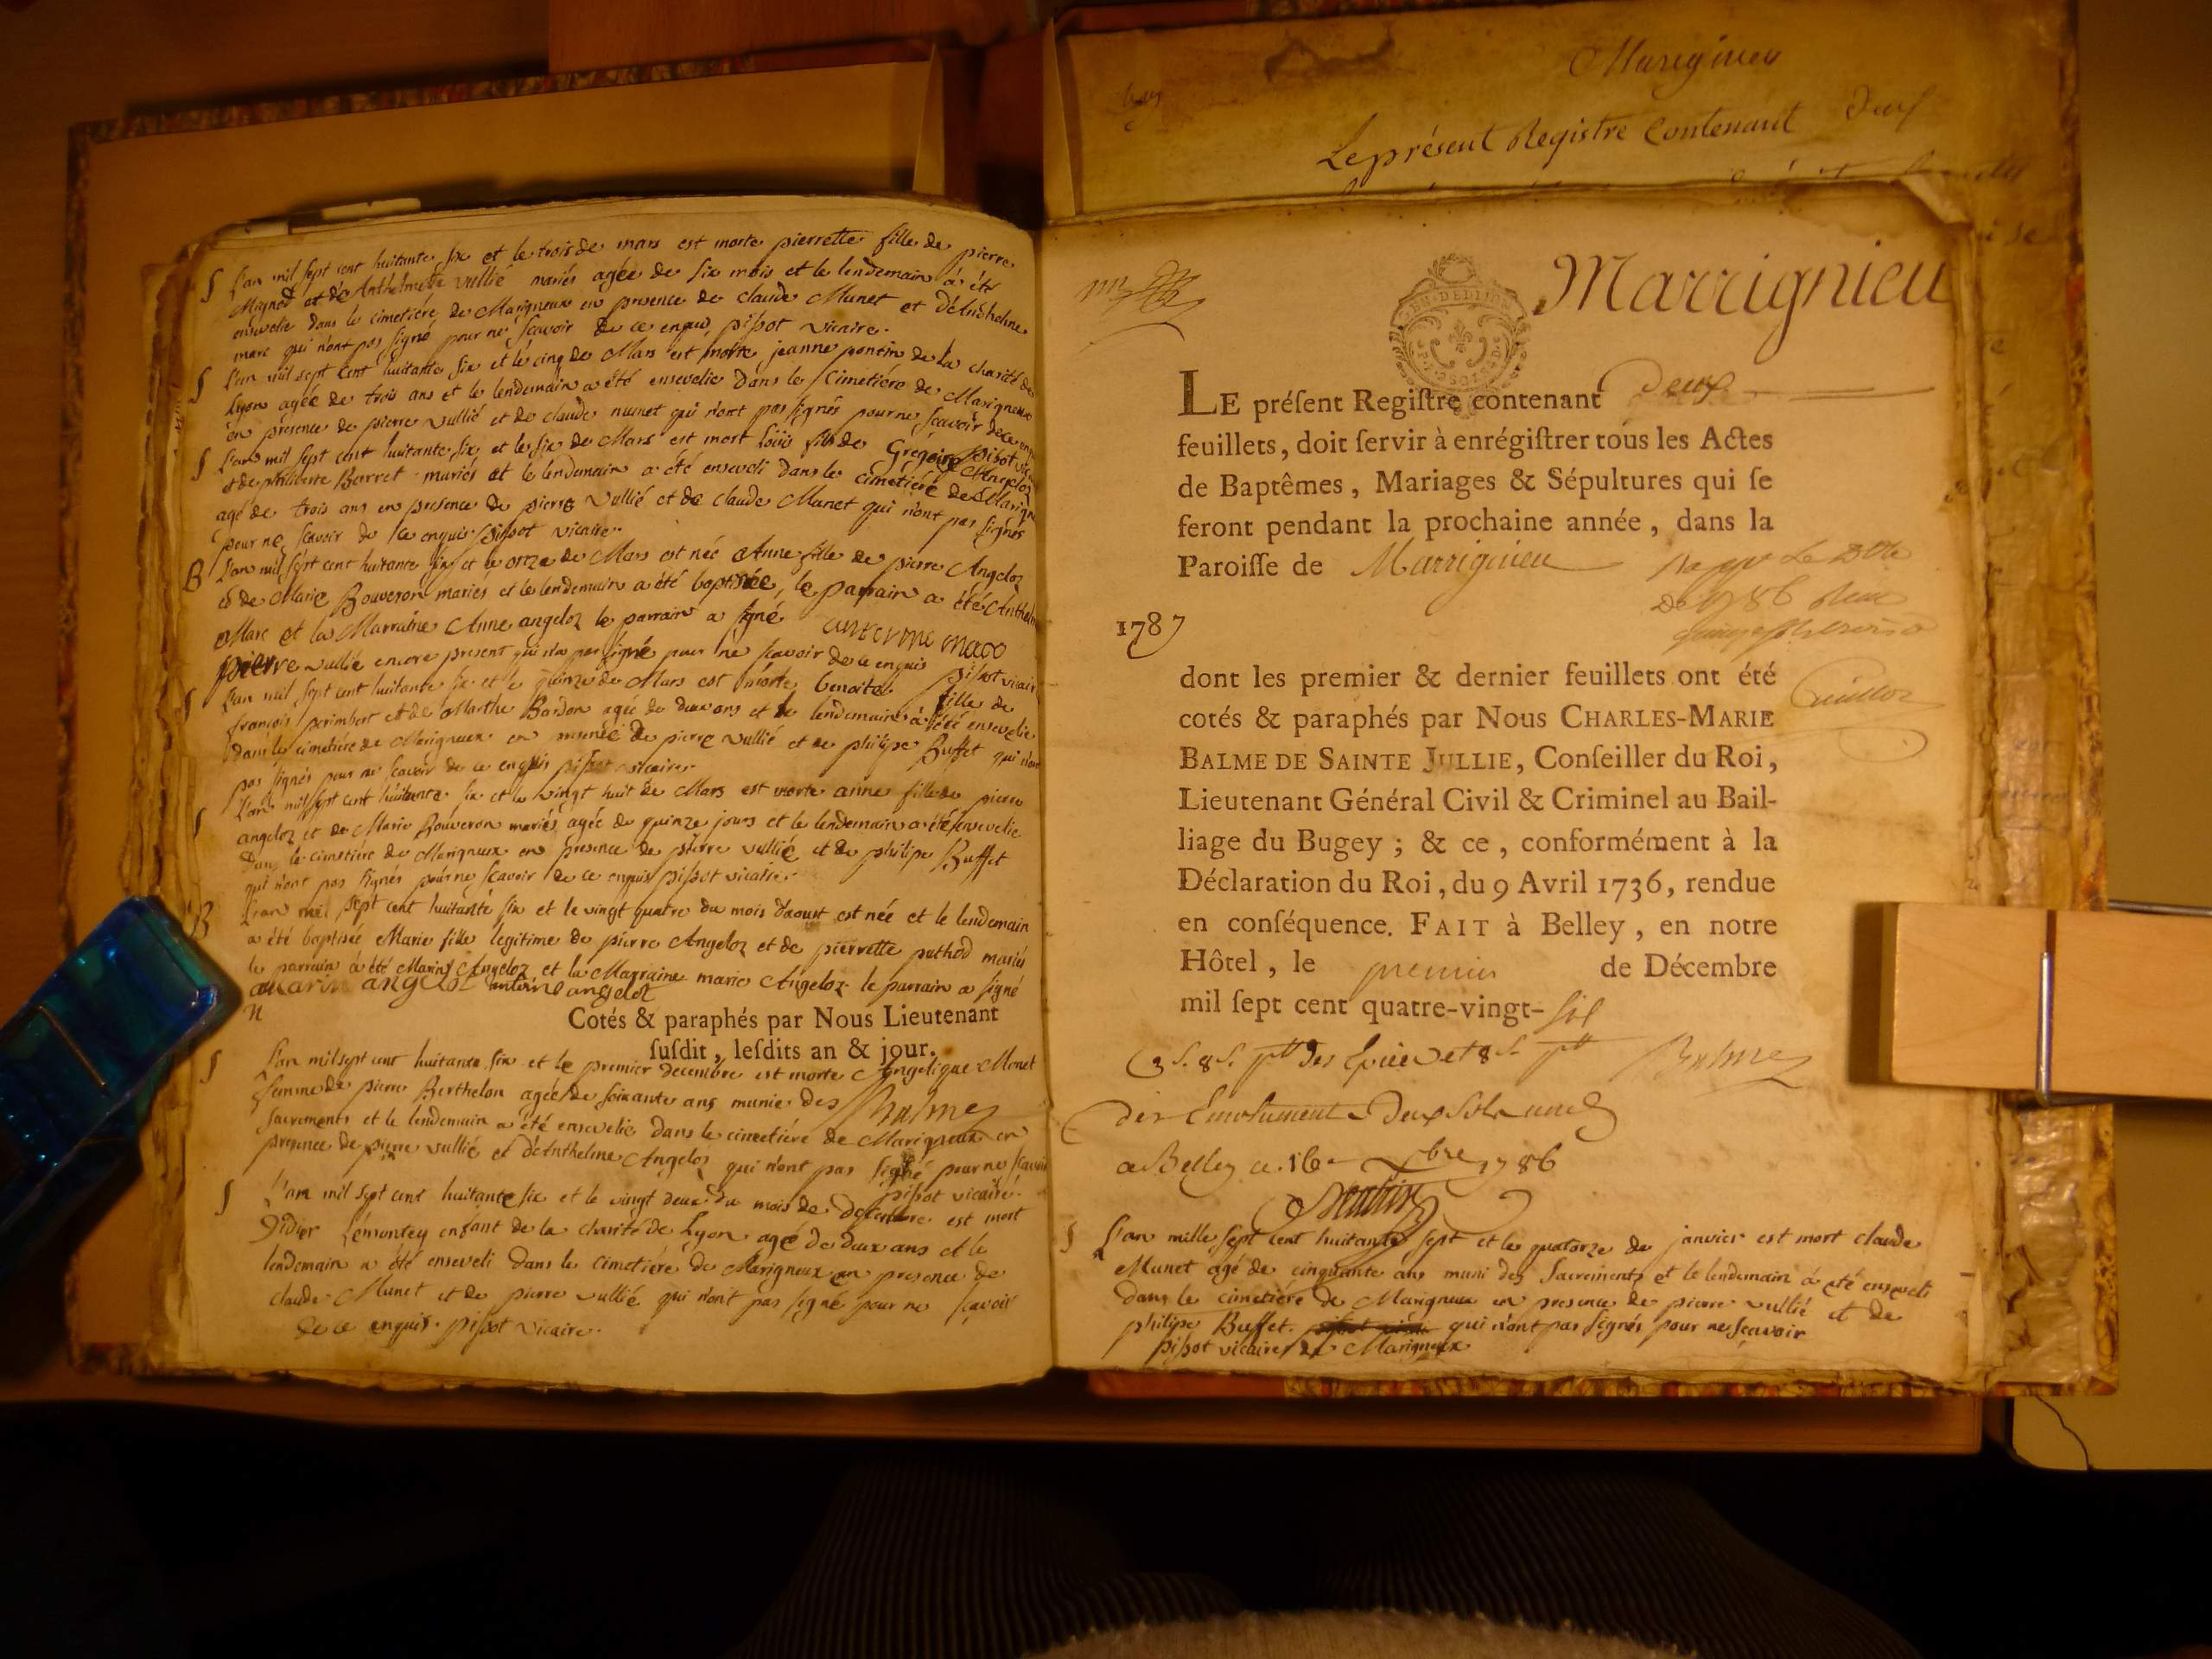 L'an mil sept cent huitante six et le trois de mars est morte pierrette fille de pierre
Mignod et de Anthelmette vullié mariés agée de six mois et le lendemain à été
ensevelie dans le cimetiére de Marigneux en presence de claude Munet et d'Anthelme
marc qui n'ont pas signé pour ne scavoir de ce enquis pissot vicaire.
S L'an mil sept cent huitante six et le cinq de Mars est morte jeanne pontin de la charité de
Lyon agée de trois ans et le lendemain a été ensevelie dans le Cimetiére de Marigneux
en presence de pierre vullié et de claude munet qui n'ont pas signés pour ne scavoir de ce
pissot
S L'an mil sept cent huitante six et le six de Mars est mort Loüis fils de Gregoire Angeloz
et de philiberte Barret mariés et le lendemain a été enseveli dans le cimetiére de Marign
agé de trois ans en presence de pierre vullié et de claude Munet qui n'ont pas signés
pour ne scavoir de ce enquis pissot vicaire.
B L'an mil sept cent huitante six et le onze de Mars est née Anne fille de pierre Angeloz
et de Marie Bouveron mariés et le lendemain a été baptisée, le parrain a été Anthelm
Marc et la Marraine Anne angeloz le parrain a signé
pierre vullié encore present qui n'a pas signé pour ne scavoir de ce enquis pissot vicair
S L'an mil sept cent huitante six et le quinze de Mars est morte benoite fille de
françois perimbert et de Marthe Bardon agée de deux ans et le lendemain a été ensevelie
dans le cimetiére de Marigneux en presence de pierre vullié et de philipe Buffet qui n'ont
pas signés pour ne scavoir de ce enquis pissot vicaire
S L'an mil sept cent huitante six et le vingt huit de Mars est morte anne fille de pierre
angeloz et de Marie Bouveron mariés agée de quinze jours et le lendemain a été ensevelie
Dans le cimetiére de Marigneux en presence de pierre vullié et de philipe Buffet
qui n'ont pas signés pour ne scavoir de ce enquis pissot vicaire.
B L'an mil sept cent huitante six et le vingt quatre du mois d'aoust est née et le lendemain
a été baptisée Marie fille legitime de pierre Angeloz et de pierrette puthod mariés
le parrain a été Marin Angeloz et la Marraine marie Angeloz le parrain a signé
marin angeloz antoine angeloz
Cotés & paraphés par Nous Lieutenant
ſuſdit, leſdits an & jour.
S L'an mil sept cent huitante six et le premier decembre est morte Angelique Monet
femme de pierre Berthelon agée de soixante ans munie des
Balme
Sacrements et le lendemain a été ensevelie dans le cimetiére de Marigneux en
presence de pierre vullié et d'Anthelme Angeloz qui n'ont pas signé pour ne scavoir
pissot vicaire.
S L'an mil sept cent huitante six et le vingt deux du mois de decembre est mort
Didier Lemontey enfant de la charité de Lyon agé de deux ans et le
lendemain a été enseveli dans le cimetiére de Marigneux en presence de
claude Munet et de pierre vullié qui n'ont pas signé pour ne scavoir
de ce enquis. pissot vicaire.
Marignieu
Le présent Registre Contenant Deux
Marrignieu
LE préſent Regiſtre contenant Deux
feuillets, doit ſervir à enrégiſtrer tous les Actes
de Baptêmes, Mariages & Sépultures qui ſe
feront pendant la prochaine année, dans la
Paroiſſe de Marrignieu
1787
dont les premier & dernier feuillets ont été
cotés & paraphés par Nous CHARLES-MARIE
BALME DE SAINTE JULLIE, Conſeiller du Roi,
Lieutenant Général Civil & Criminel au Bail-
liage du Bugey ; & ce, conformément à la
Déclaration du Roi, du 9 Avril 1736, rendue
en conſéquence. FAIT à Belley, en notre
Hôtel, le premier de Décembre
mil ſept cent quatre-vingt-six
Balme
a Belley ce 16 xbre 1786
S L'an mille sept cent huitante sept et le quatorze de janvier est mort claude
Munet agé de cinquante ans muni des Sacrements et le lendemain à été enseveli
Dans le cimetiére de Marigneux en presence de pierre vullié et de
philipe Buffet. qui n'ont pas signés pour ne scavoir
pissot vicaire de Marigneux